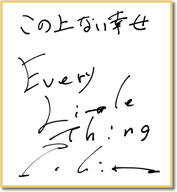 この上ない幸せ
Every
Little
Thing